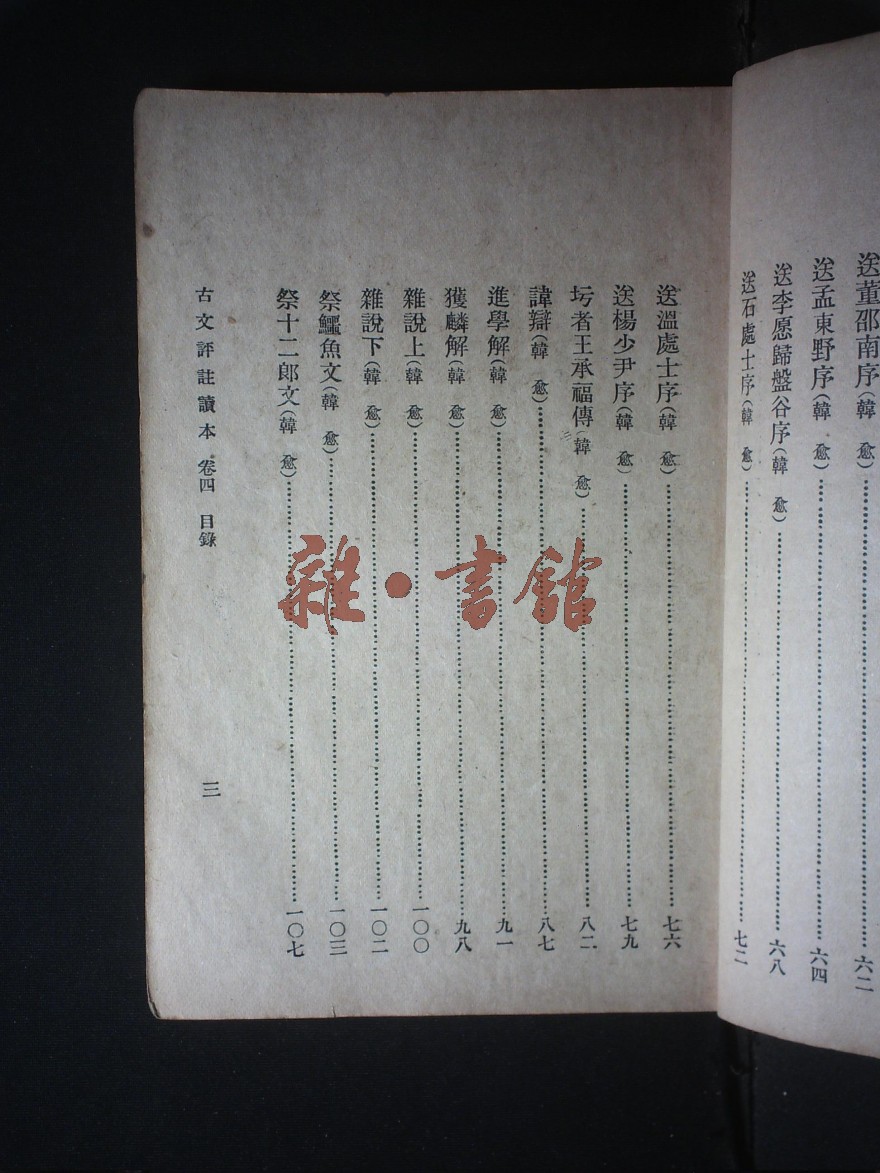 送董邵南序(韓 愈)……六二
送孟東野序(韓 愈)……六四
送李愿歸盤谷序(韓 愈)……六八
送石處士序(韓 愈)……七二
送溫處士序(韓 愈)……七六
送楊少尹序(韓 愈)……七九
圬者王承福傳(韓 愈)……八二
諱辯(韓 愈)……八七
進學解(韓 愈)……九一
獲麟解(韓 愈)……九八
雜說上(韓 愈)……一〇〇
雜說下(韓 愈)……一〇二
祭鱷魚文(韓 愈)……一〇三
祭十二郎文(韓 愈)……一〇七
古文評註讀本 卷四 目錄 三
雜·書館